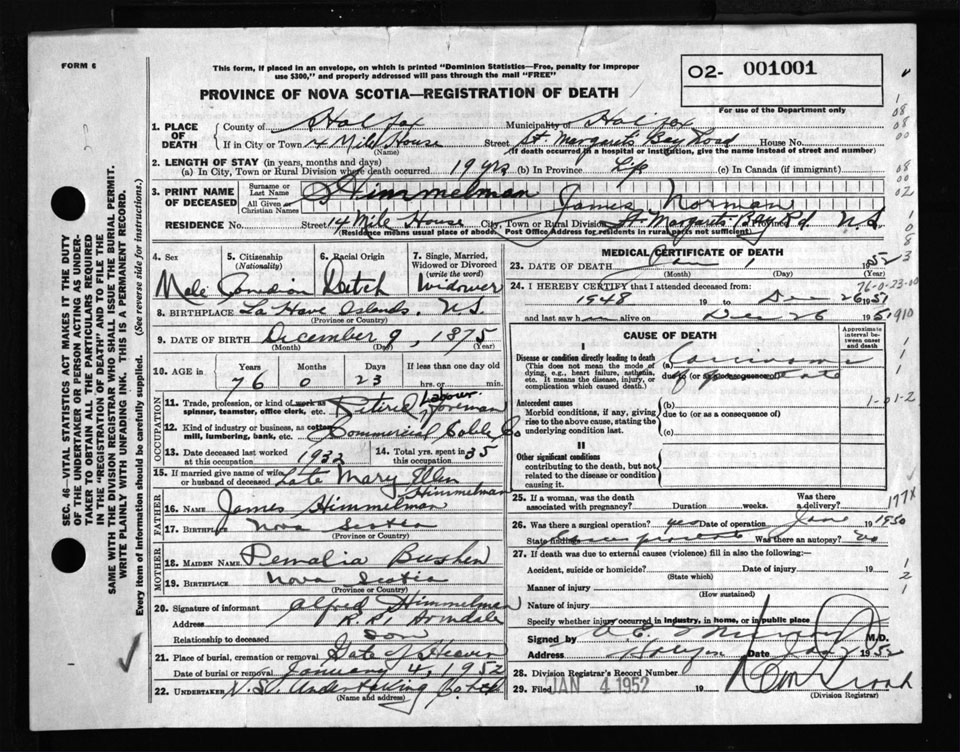 FORM 6
This form, if placed in an envelope, on which is printed "Dominion Statistics—Free, penalty for improper
use $300," and properly addressed will pass through the mail "FREE"
O2- 001001
For use of the Department only
PROVINCE OF NOVA SCOTIA—REGISTRATION OF DEATH
1. PLACE OF DEATH County of Halifax Municipality of Halifax
If in City or Town 14 Mile House (Name) Street St Margarets Bay Road House No.
(If death occurred in a hospital or institution, give the name instead of street and number)
2. LENGTH OF STAY (in years, months and days)
(a) In City, Town or Rural Division where death occurred 19 yrs (b) In Province Life (c) In Canada (if immigrant)
3. PRINT NAME OF DECEASED Surname or Last Name Himmelman
All Given or Christian Names James Norman
RESIDENCE No. Street 14 Mile House City, Town or Rural Division St Margarets Bay Rd. N.S.
(Residence means usual place of abode. Post Office Address for residents in rural parts not sufficient)
4. Sex Male
5. Citizenship (Nationality) Canadian
6. Racial Origin Dutch
7. Single, Married, Widowed or Divorced (write the word) Widower
8. BIRTHPLACE La Have Islands, N.S.
(Province or Country)
9. DATE OF BIRTH December 9, 1875
(Month) (Day) (Year)
10. AGE in Years Months Days If less than one day old
76 0 23 hrs. or min.
OCCUPATION
11. Trade, profession, or kind of work as spinner, teamster, office clerk, etc. Retired Labour Foreman
12. Kind of industry or business, as cotton mill, lumbering, bank, etc. Commercial Cable Co
13. Date deceased last worked at this occupation 1932 14. Total yrs. spent in this occupation 35
15. If married give name of wife or husband of deceased Late Mary Ellen Himmelman
FATHER
16. Name James Himmelman
17. Birthplace Nova Scotia
(Province or Country)
MOTHER
18. MAIDEN NAME
19. BIRTHPLACE Nova Scotia
(Province or Country)
20. Signature of informant Alfred Himmelman
Address R.R.1 Armdale
Relationship to deceased Son
21. Place of burial, cremation or removal Gate of Heaven
Date of burial or removal January 4, 1952
22. UNDERTAKER N.S. Undertaking Co Ltd
(Name and address)
MEDICAL CERTIFICATE OF DEATH
23. DATE OF DEATH Jan 1 1952
(Month) (Day) (Year)
24. I HEREBY CERTIFY that I attended deceased from:
1948 19 to Dec 26 1951
and last saw h im alive on Dec 26 1951
CAUSE OF DEATH
Approximate interval between onset and death
I
Disease or condition directly leading to death (a) Carcinoma
(This does not mean the mode of dying, e.g., heart failure, asthenia, etc. It means the disease, injury, or complication which caused death.)
due to (or as a consequence of) of prostate
Antecedent causes
Morbid conditions, if any, giving rise to the above cause, stating the underlying condition last.
(b)
due to (or as a consequence of)
(c)
II
Other significant conditions
contributing to the death, but not related to the disease or condition causing it.
25. If a woman, was the death associated with pregnancy? Duration weeks. Was there a delivery?
26. Was there a surgical operation? yes Date of operation Jan 19 1950
State findings prostate Was there an autopsy? no
27. If death was due to external causes (violence) fill in also the following:—
Accident, suicide or homicide? Date 19
(State which)
Manner of injury
(How sustained)
Nature of injury
Specify whether injury occurred in industry, in home, or in public place
Signed by M.D.
Address Halifax Date Jan 1952
28. Division Registrar's Record Number
29. Filed JAN 4 1952 19
(Division Registrar)
76-0-23-00
910
1-01-2
177X
SEC. 46—VITAL STATISTICS ACT MAKES IT THE DUTY
OF THE UNDERTAKER OR PERSON ACTING AS UNDER-
TAKER TO OBTAIN ALL THE PARTICULARS REQUIRED
IN THE "REGISTRATION OF DEATH" AND TO FILE THE
SAME WITH THE DIVISION REGISTRAR WHO SHALL ISSUE THE BURIAL PERMIT.
WRITE PLAINLY WITH UNFADING INK. THIS IS A PERMANENT RECORD.
Every item of information should be carefully supplied. (See reverse side for instructions.)